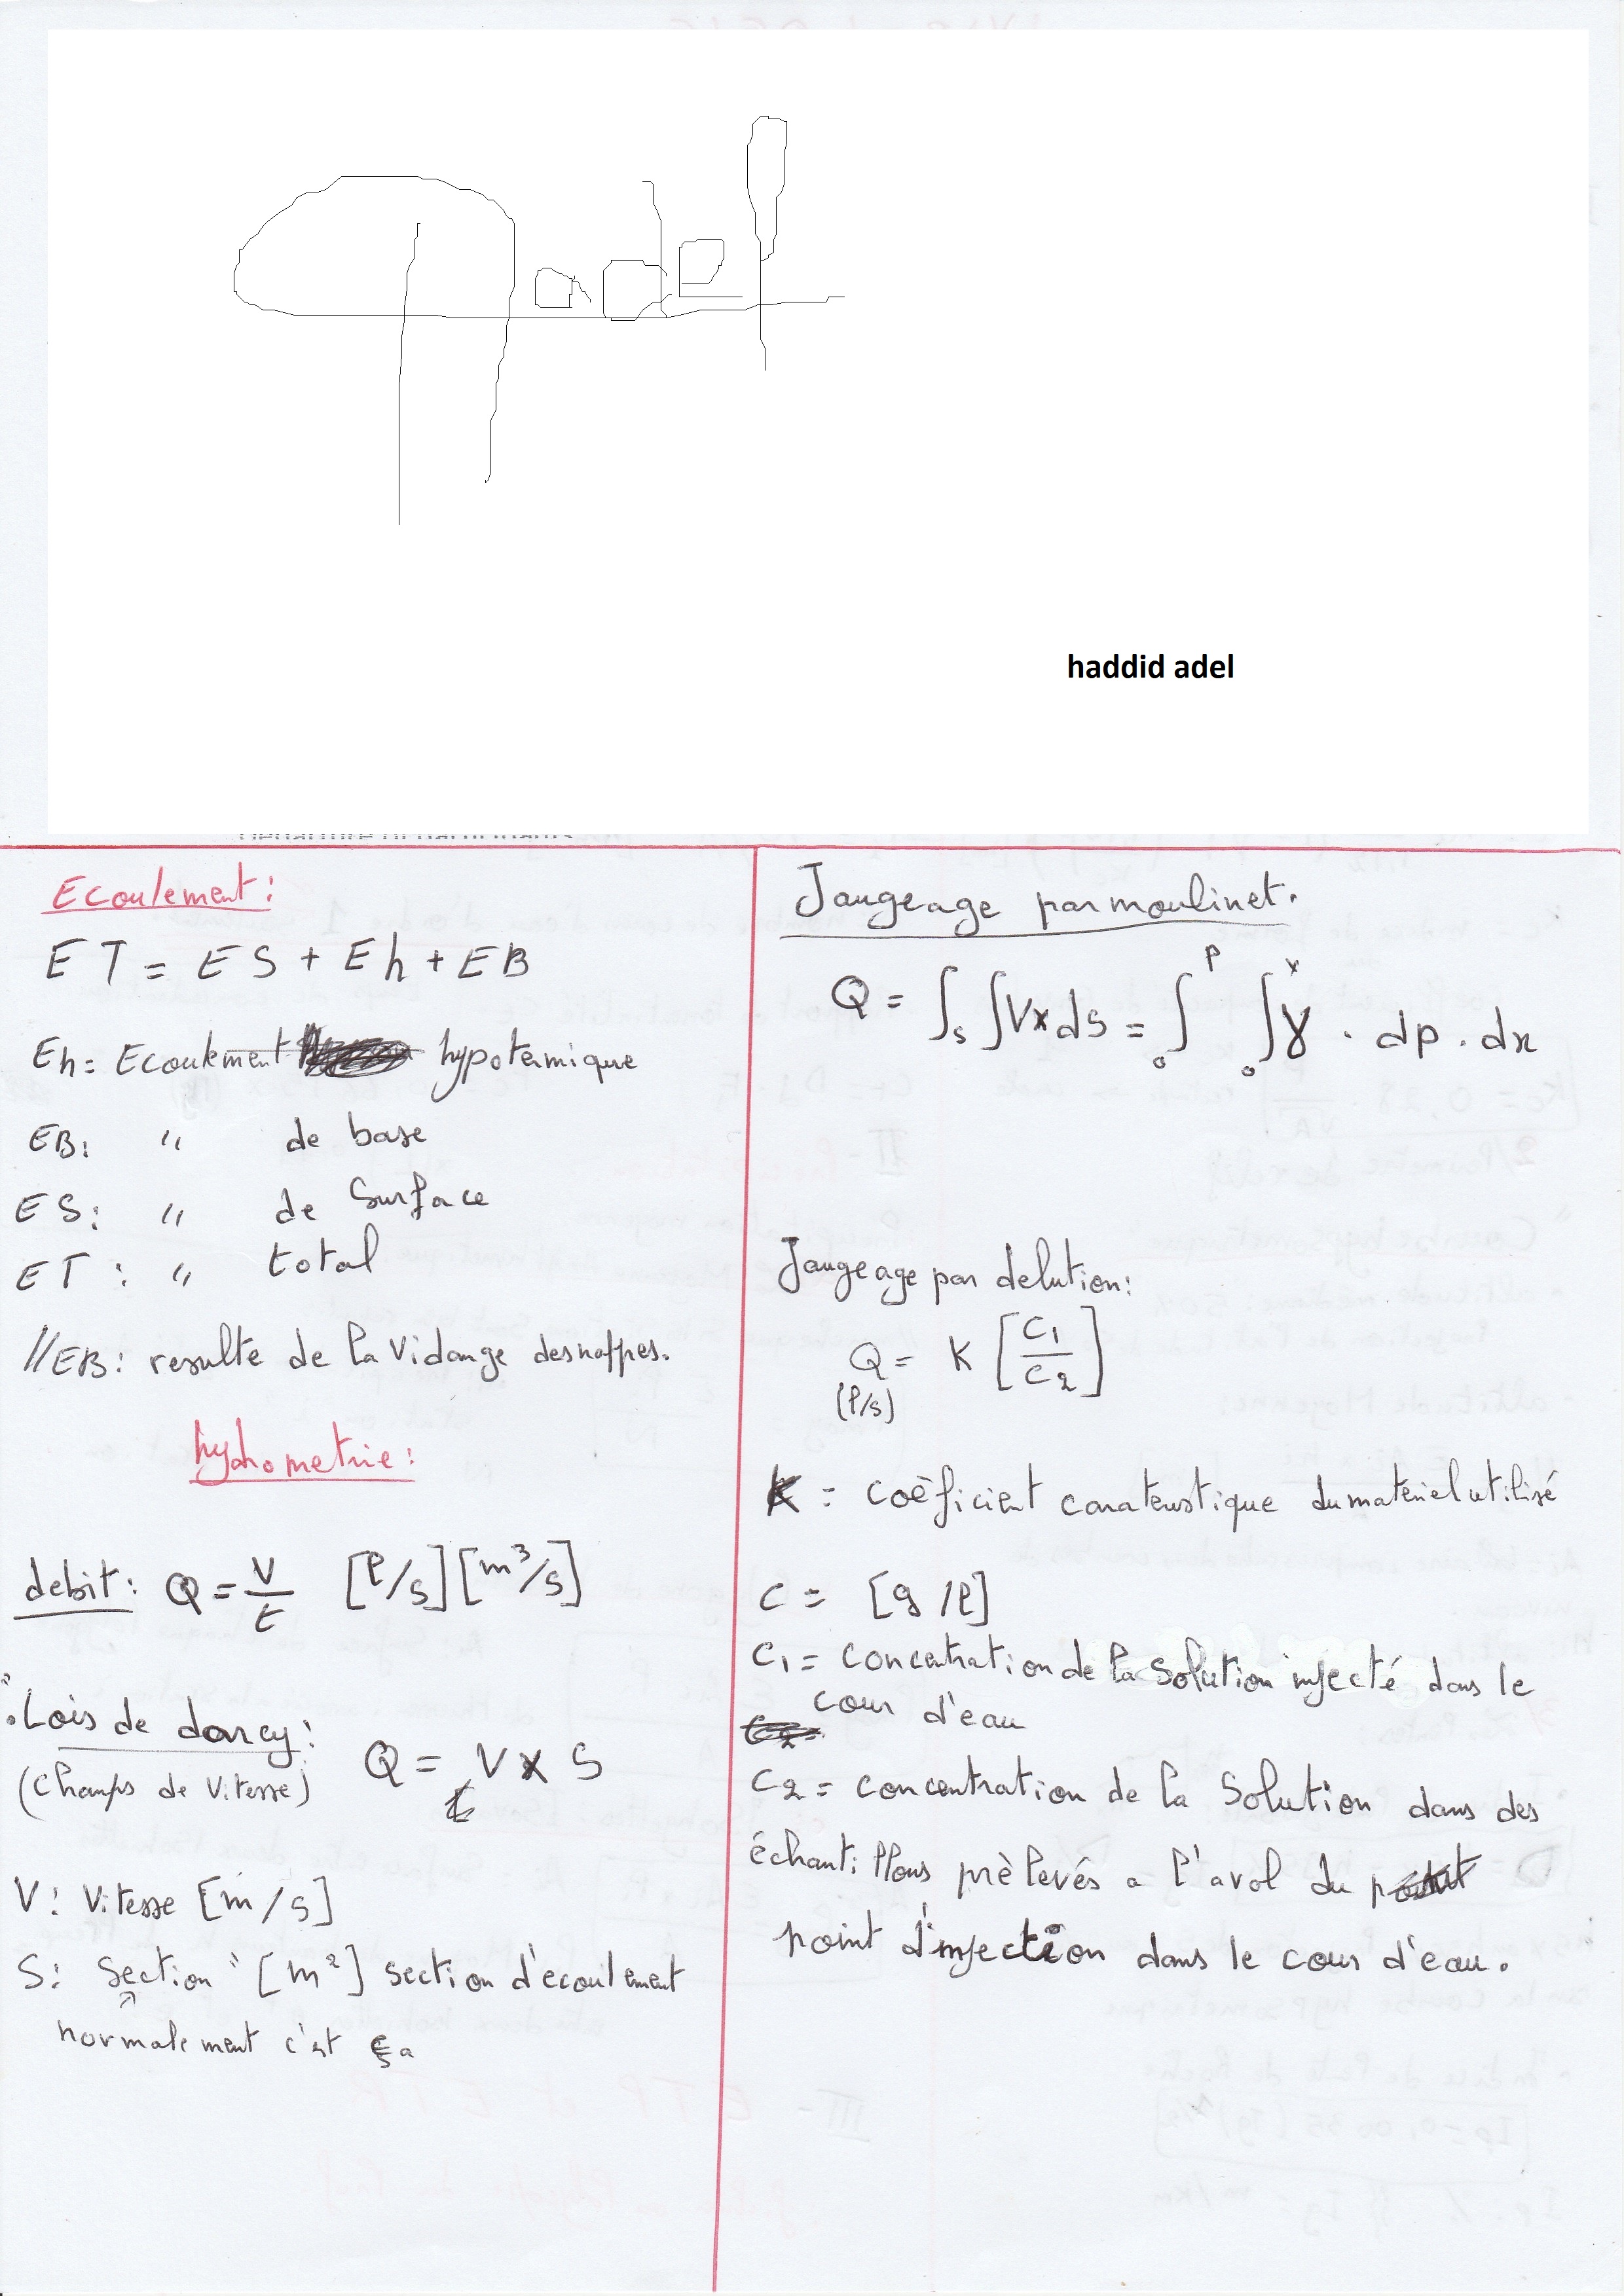 haddid adel
Ecoulement:
ET = ES + Eh + EB
Eh = Ecoulement hypotermique
EB: " de base
ES: " de Surface
ET: " total
//EB: resulte de la Vidange des nappes.
hydrometrie:
debit: Q = V/t [l/s] [m³/s]
Lois de darcy:
(Champs de Vitesse) Q = V x S
V: Vitesse [m/s]
S: Section [m²] section d'ecoulement
normalement c'est ça
Jaugeage par moulinet.
Q = ∫s ∫Vx ds = ∫₀^P ∫₀^x γ . dp . dx
Jaugeage par delution:
Q = K [C1/C2]
(l/s)
K = coèficient caracteristique du matèriel utilisé
C = [g/l]
C1 = concentration de la solution injecté dans le
cour d'eau
C2 = concentration de la Solution dans des
échantillons prèlevés a l'aval du
point d'injection dans le cour d'eau.